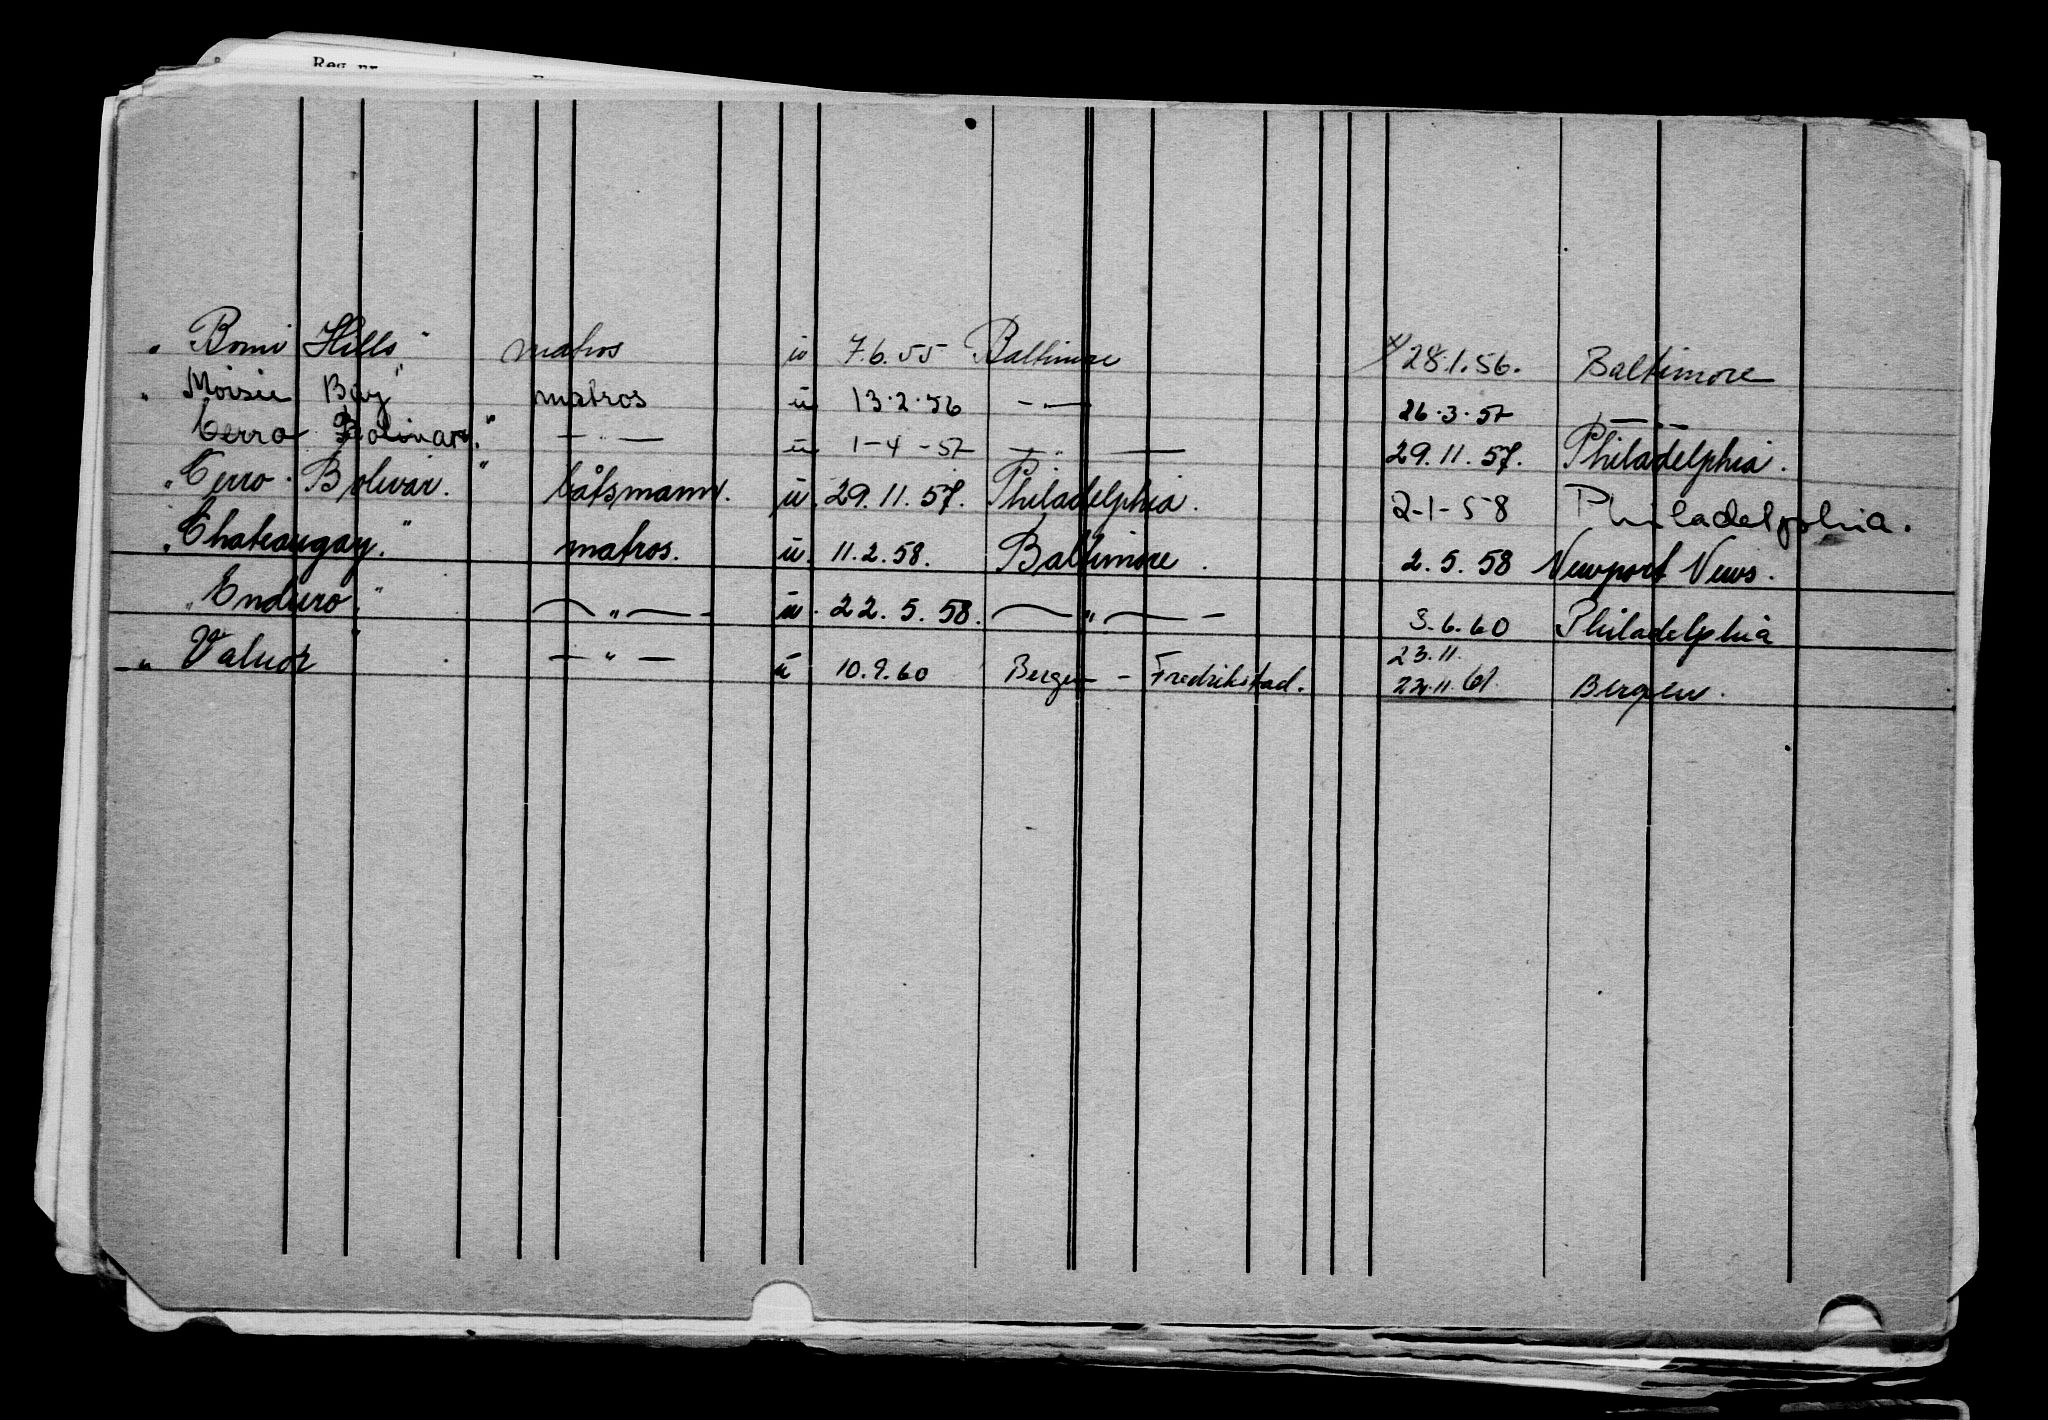 Reg. nr.
„ Bomi Hills" matros u 7.6.55 Baltimore x/ 28.1.56. Baltimore
„ Moisie Bay" matros u 13.2.56 — „ — 26.3.57 — „ —
Cerro Bolivar." — „ — u 1-4-57 — „ — 29.11.57. Philadelphia.
„ Cerro. Bolivar." båtsmann. u. 29.11.57. Philadelphia. 2-1-58 Philadelphia.
„ Chateaugay." matros. u. 11.2.58. Baltimore. 2.5.58 Newport News.
„ Enduro." — „ — u. 22.5.58. — „ — 3.6.60 Philadelphia
— „ Valuor — „ — u 10.9.60 Bergen - Fredrikstad. 23.11. 22.11.61. Bergen.